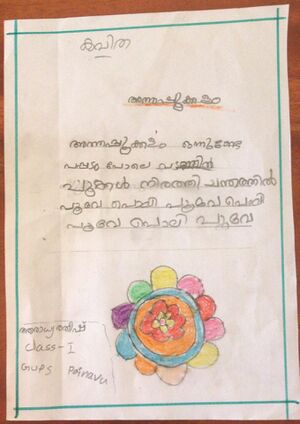 കവിത
അത്തപ്പൂക്കളം
അത്തപ്പൂക്കളം ഒന്നുണ്ടേ
പപ്പടം പോലെ വട്ടത്തിൽ
പൂക്കൾ നിരത്തി ചന്തത്തിൽ
പൂവേ പൊലി പൂവേപൊലി
പൂവേ പൊലി പൂവേ
Class - I
GUPS Painavu